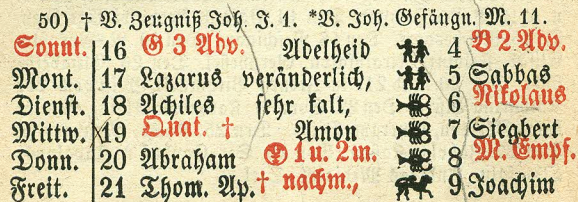 50) † V. Zeugniß Joh. J. 1. *V. Joh. Gefängn. M. 11.
Sonnt. 16 G 3 Adv. Adelheid 4 B 2 Adv.
Mont. 17 Lazarus veränderlich, 5 Sabbas
Dienst. 18 Achiles sehr kalt, 6 Nikolaus
Mittw. 19 Quat. † Amon 7 Siegbert
Donn. 20 Abraham 1 u. 2m. 8 M. Empf.
Freit. 21 Thom. Ap. † nachm., 9 Joachim